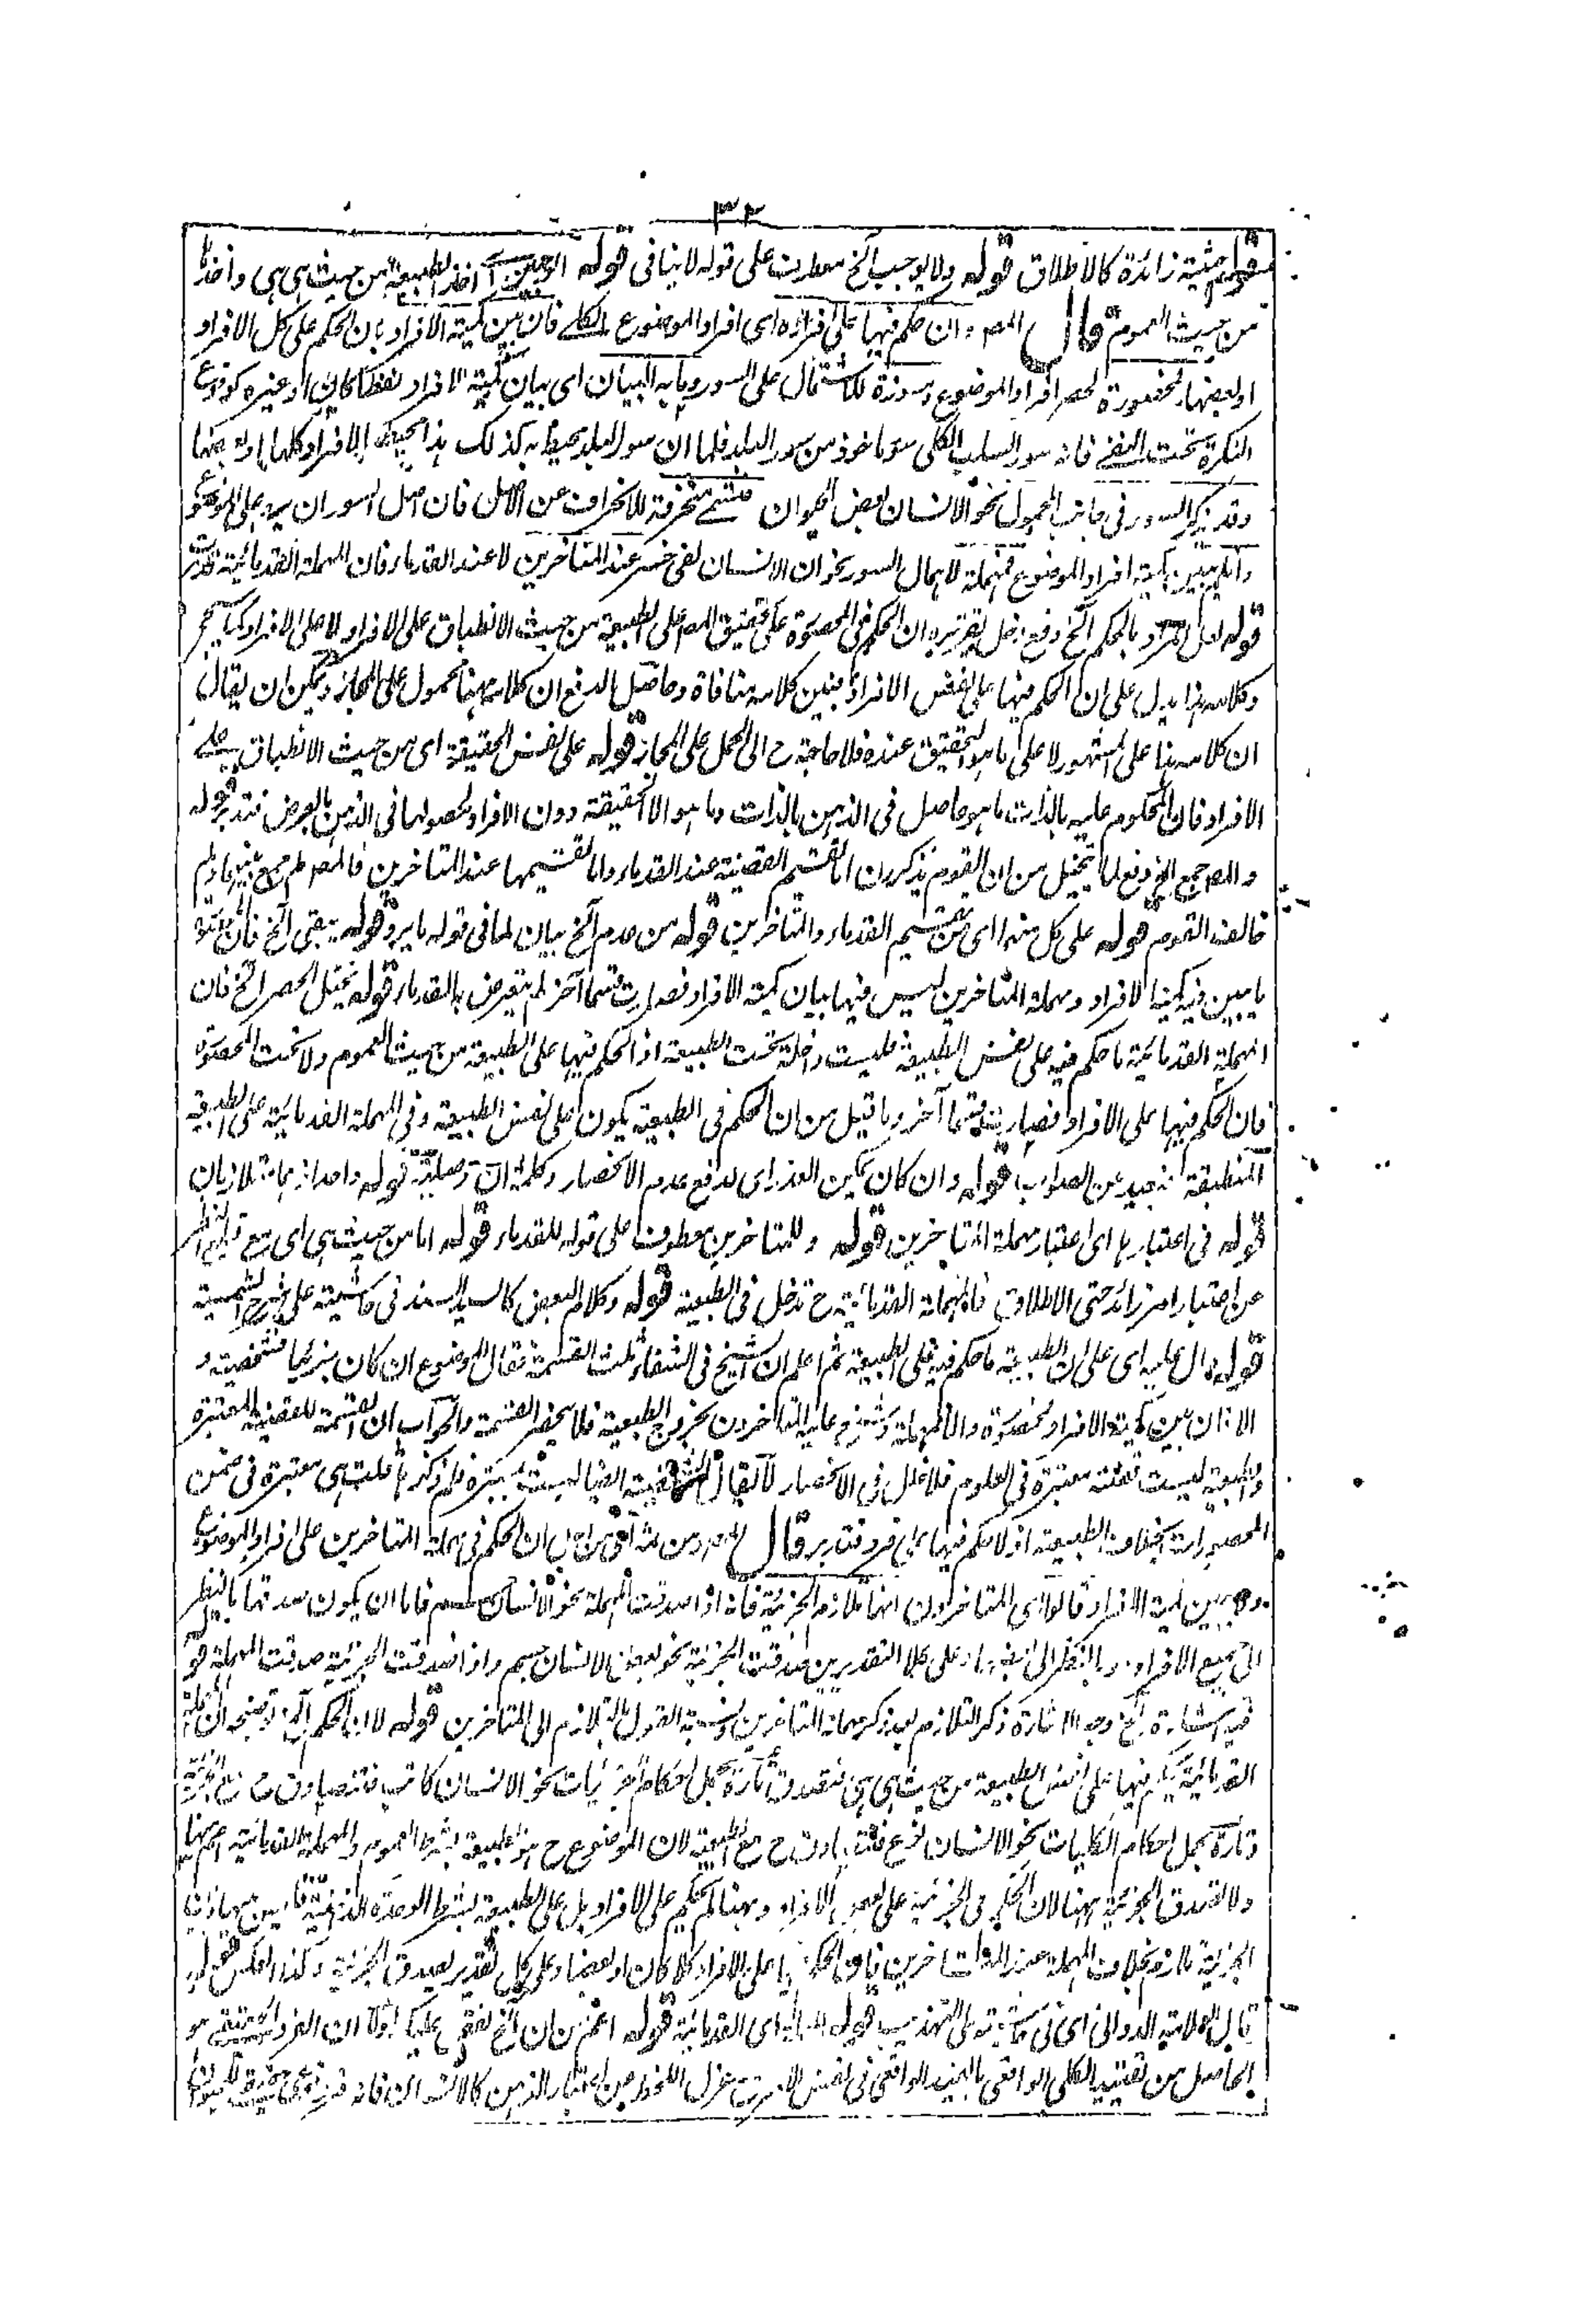 ٣٢
حيثية زائدة كالاطلاق قوله ولا يوجب الخ معطوف على قوله لا ينافى قوله اخذ الطبيعة من حيث هى هى واخذها
من حيث العموم قال المصـ وان حكم فيها على افراده اى افراد الموضوع الكلى فان بين كمية الافراد بان الحكم على كل الافراد
او بعضها فمحصورة لحصر افراد الموضوع ومسورة للاشتمال على السور وما به البيان اى بيان كمية الافراد لفظا كان او غيره كوقوع
النكرة تحت النفى فانه سور السلب الكلى ماخوذ من سور البلد فكما ان سور البلد محيط به كذلك هذا محيط الافراد كلها او بعضها
وقد يذكر السور فى جانب المحمول نحو الانسان بعض الحيوان فتسمى منحرفة للانحراف عن الاصل فان اصل السور ان يرد على الموضوع
وان لم يبين كمية افراد الموضوع فمهملة لاهمال السور نحو ان الانسان لفى خسر عند المتاخرين لا عند القدماء فان المهملة القدمائية
قوله لعل المراد بالحكم الخ دفع دخل تقريره ان الحكم فى المحصورة على تحقيق المصـ على الطبيعة من حيث الانطباق على الافراد لا على الافراد كما سيجئ
وكلامه هذا يدل على ان الحكم فيها على نفس الافراد فبين كلاميه منافاة وحاصل الدفع ان كلامه ههنا محمول على المجاز ويمكن ان يقال
ان كلامه بنا على المشهور لا على ما هو التحقيق عنده فلا حاجة ح الى الحمل على المجاز قوله على نفس الحقيقة اى من حيث الانطباق على
الافراد فان المحكوم عليه بالذات ما هو حاصل فى الذهن بالذات وما هو الا الحقيقة دون الافراد لحصولها فى الذهن بالعرض فتدبر قوله
والمصـ جمع الخ دفع لما يتخيل من ان القوم يذكرون اما تقسيم القضية عند القدماء واما تقسيمها عند المتاخرين فالمصـ لم جمع بينهما ولم
خالف القوم قوله على كل منهما اى من تقسيم القدماء والمتاخرين قوله من عدم الخ بيان لما فى قوله ما يرد قوله يبقى الخ فان المحصورة
ما يبين فيه كمية الافراد ومهملة المتاخرين ليس فيها بيان كمية الافراد فصارت قسما آخر لم يتعرض بها القدماء قوله يختل الحصر الخ فان
المهملة القدمائية ما حكم فيه على نفس الطبيعة فليست داخلة تحت الطبيعة اذ الحكم فيها على الطبيعة من حيث العموم ولا تحت المحصورة
فان الحكم فيها على الافراد فصارت قسما آخر وما قيل من ان الحكم فى الطبيعة يكون على نفس الطبيعة وفى المهملة القدمائية على الطبيعة
المنطبقة فبعيد عن الصواب قوله وان كان يمكن العذر اى لدفع عدم الانحصار وكلمة ان وصلية قوله واحد انهما متلازمان
قوله فى اعتبارها اى اعتبار مهملة المتاخرين قوله وللمتاخرين معطوف على قوله للقدماء قوله اما من حيث هى اى مع قطع النظر
عن اعتبار امر زائد حتى الاطلاق فالمهملة القدمائية ح تدخل فى الطبيعة قوله وكلام البعض كالسيد السند فى حاشيته على شرح الشمسية
قوله دال عليه اى على ان الطبيعة ما حكم فيه على الطبيعة ثم اعلم ان الشيخ فى الشفاء ثلث القسمة فقال الموضوع ان كان جزئيا فشخصية و
الا فان بين كمية الافراد فمحصورة والا فمهملة وشنع عليه المتاخرون بخروج الطبيعة فلا ينحصر القسمة والجواب ان القسمة للقضية المعتبرة
والطبيعة ليست قضية معتبرة فى العلوم فلا خلل فى الانحصار لا يقال الشخصية ايضا ليست معتبرة فلم ذكرها قلت هى معتبرة فى ضمن
المحصورات بخلاف الطبيعة اذ لا حكم فيها على فرد فتدبر قال المصـ ومن ثم اى من اجل ان الحكم فى مهملة المتاخرين على افراد الموضوع
ولم يبين كمية الافراد قالوا اى المتاخرون انها تلازم الجزئية فانه اذا صدقت المهملة نحو الانسان جسم فاما ان يكون صدقها بالنظر
الى جميع الافراد وبالنظر الى بعضها وعلى كلا التقديرين صدقت الجزئية نحو بعض الانسان جسم واذا صدقت الجزئية صدقت المهملة قوله
فيه اشارة الخ وجه الاشارة ذكر التلازم بعد ذكر مهملة المتاخرين ونسبة القول بالتلازم الى المتاخرين قوله لان الحكم الخ توضيحه ان المهملة
القدمائية يحكم فيها على نفس الطبيعة من حيث هى هى فتصدق تارة بحمل احكام الجزئيات نحو الانسان كاتب فتتصادق ح مع الجزئية
وتارة بحمل احكام الكليات نحو الانسان نوع فتصادق ح مع الطبيعة لان الموضوع ح هو الطبيعة بشرط العموم والمهملة القدمائية اعم منها
ولا تصدق الجزئية ههنا لان الحكم فى الجزئية على بعض الافراد وههنا لم يحكم على الافراد بل على الطبيعة بشرط الوحدة الذهنية
الجزئية تلازم بخلاف المهملة عند المتاخرين فان الحكم فيها على الافراد كلا كان او بعضا وعلى كل تقدير يصدق الجزئية وكذا العكس قوله
قال العلامة الدوانى اى فى حاشيته على التهذيب قوله اى القدمائية قوله اعم من ان الخ نقص عليك اولا ان الفرد الحقيقى هو
الحاصل من تقييد الكلى الواقعى بالقيد الواقعى فى نفس الامر مع عزل اللحاظ عن اعتبار الذهن كالانسان فانه فرد